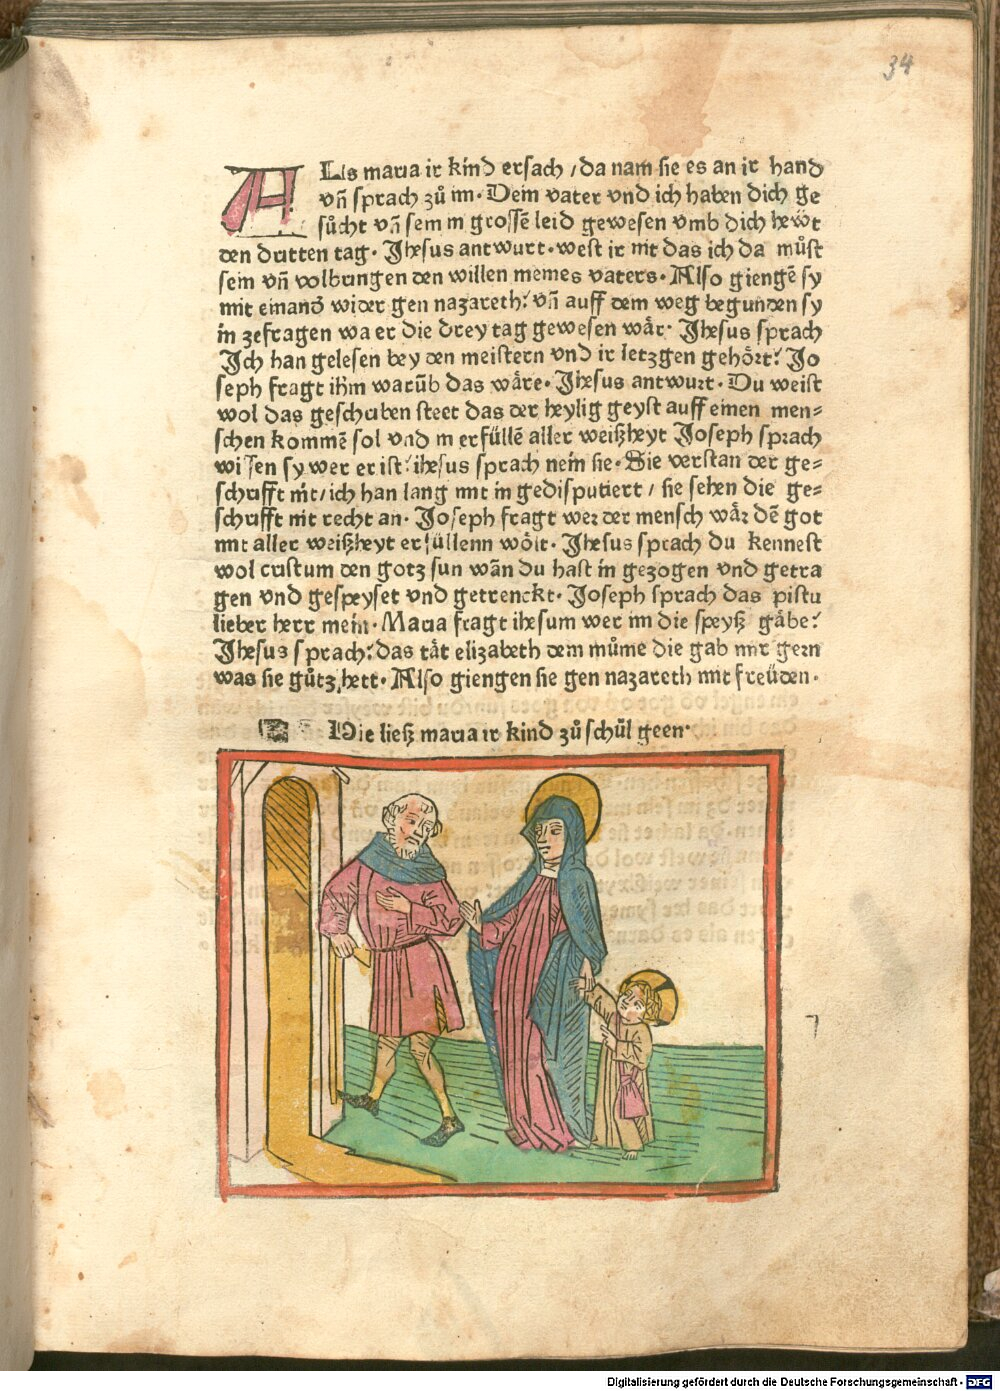 34
ALs maria ir kind ersach / da nam sie es an ir hand
vn̄ sprach zů im · Dein vater vnd ich haben dich ge
sůcht vn̄ sein in grossē leid gewesen vmb dich hewt
den dritten tag · Jhesus antwurt · west ir nit das ich da můst
sein vn̄ volbringen den willen meines vaters · Also giengē sy
mit einand wider gen nazareth: vn̄ auff dem weg begunden sy
in zefragen wa er die drey tag gewesen wår · Jhesus sprach
Jch han gelesen bey den meistern vnd ir letzgen gehört: Jo
seph fragt ihm warūb das wåre · Jhesus antwurt · Du weist
wol das geschriben steet das der heylig geyst auff einen men=
schen kommē sol vnd in erfüllē aller weißheyt Joseph sprach
wissen sy wer er ist: ihesus sprach nein sie · Sie verstan der ge=
schrifft nit / ich han lang mit in gedisputiert / sie sehen die ge=
schrifft nit recht an · Joseph fragt wer der mensch wår dē got
mit aller weißheyt erfüllenn wölt · Jhesus sprach du kennest
wol cristum den gotz sun wān du hast in gezogen vnd getra
gen vnd gespeyset vnd getrenckt · Joseph sprach das pistu
lieber herr mein · Maria fragt ihesum wer im die speyß gåbe:
Jhesus sprach: das tåt elizabeth dem můme die gab mir gern
was sie gůtz hett · Also giengen sie gen nazareth mit freüden ·
Die ließ maria ir kind zů schůl geen ·
Digitalisierung gefördert durch die Deutsche Forschungsgemeinschaft - DFG